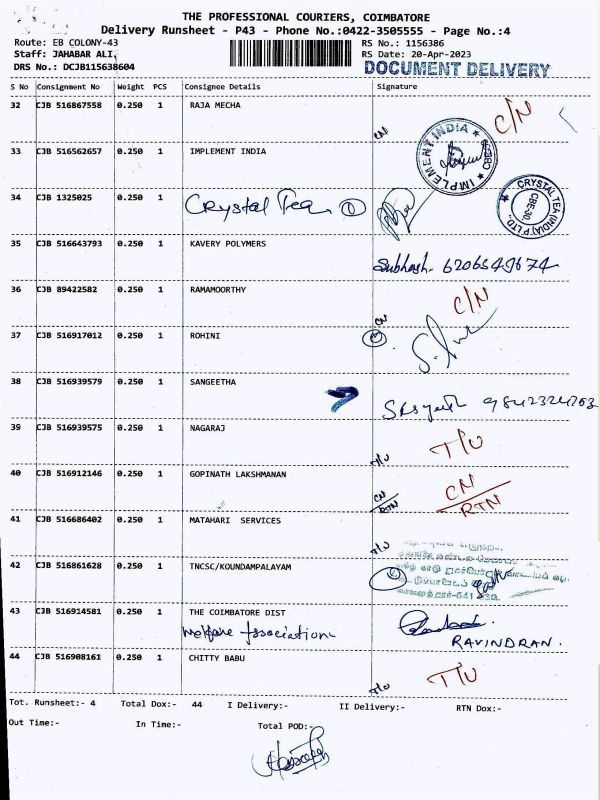 THE PROFESSIONAL COURIERS, COIMBATORE
Delivery Runsheet - P43 - Phone No.:0422-3505555 - Page No.:4
Route: EB COLONY-43 RS No.: 1156386
Staff: JAHABAR ALI, RS Date: 20-Apr-2023
DRS No.: DCJB115638604 DOCUMENT DELIVERY
S No Consignment No Weight PCS Consignee Details Signature
32 CJB 516867558 0.250 1 RAJA MECHA
CN C/N
33 CJB 516562657 0.250 1 IMPLEMENT INDIA
IMPLEMENT INDIA CBE
34 CJB 1325025 0.250 1 Crystal Tea ①
CRYSTAL TEA (INDIA) P LTD. CBE-30.
35 CJB 516643793 0.250 1 KAVERY POLYMERS
Subhash. 6206549674
36 CJB 89422582 0.250 1 RAMAMOORTHY
CN C/N
37 CJB 516917012 0.250 1 ROHINI
38 CJB 516939579 0.250 1 SANGEETHA
39 CJB 516939575 0.250 1 NAGARAJ
T/U T/U
40 CJB 516912146 0.250 1 GOPINATH LAKSHMANAN
CN/RTN CN/RTN
41 CJB 516686402 0.250 1 MATAHARI SERVICES
T/U
42 CJB 516861628 0.250 1 TNCSC/KOUNDAMPALAYAM
43 CJB 516914581 0.250 1 THE COIMBATORE DIST
Welfare Association
RAVINDRAN.
44 CJB 516908161 0.250 1 CHITTY BABU
T/U T/U
Tot. Runsheet:- 4 Total Dox:- 44 I Delivery:- II Delivery:- RTN Dox:-
Out Time:- In Time:- Total POD:-